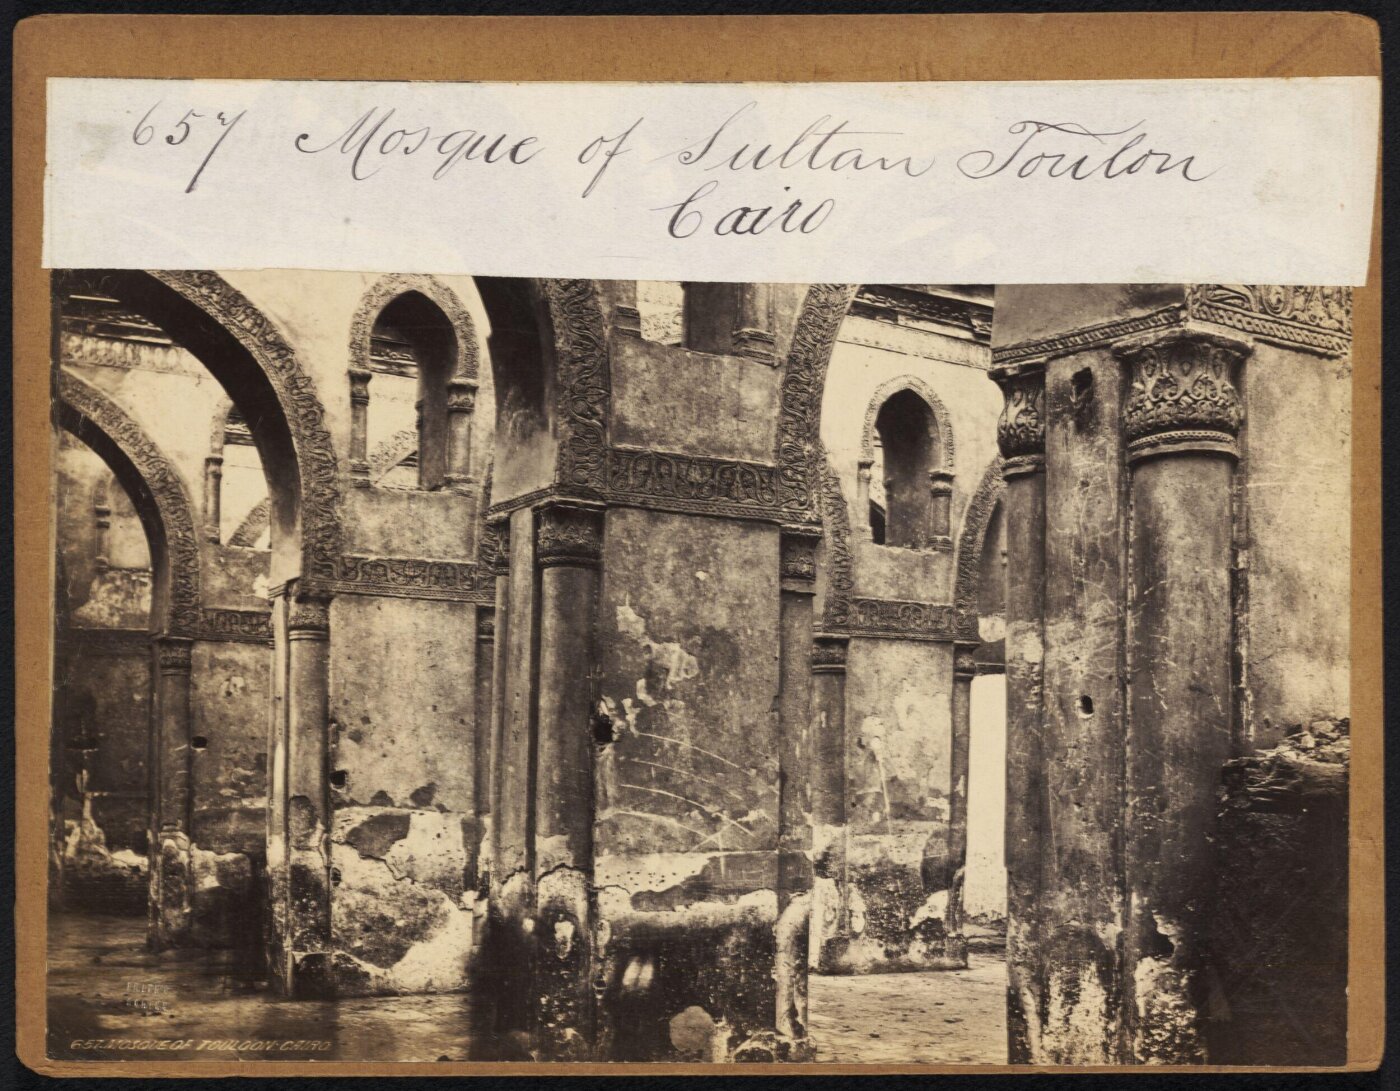 657 Mosque of Sultan Toulon
Cairo
FRITH'S
SERIES
657. MOSQUE OF TOULOON. CAIRO